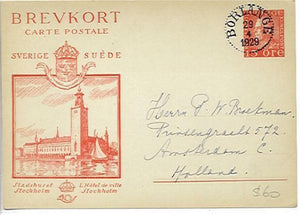 BREVKORT
CARTE POSTALE
SVERIGE SUÈDE
BORLÄNGE
29
4
1929
15 ÖRE
Herrn P W Moekman.
Prinsengracht 572.
Amsterdam C.
Holland.
Stadshuset L'Hôtel de ville
Stockholm Stockholm
S60